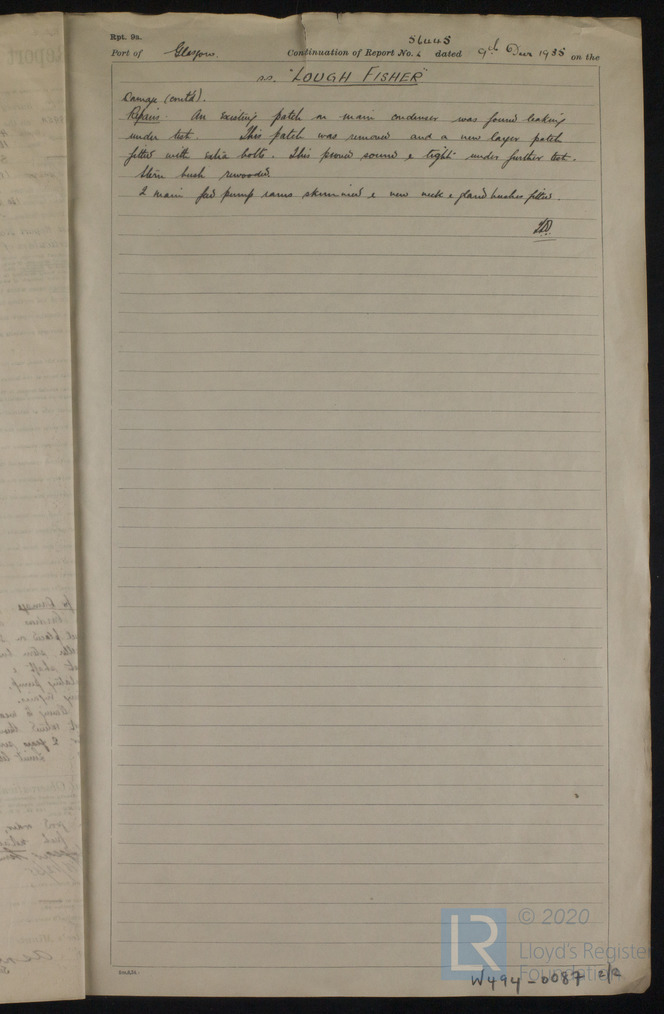 Rpt. 9a.
Port of Glasgow. Continuation of Report No. dated 9th Dec 1938 on the
ss. "LOUGH FISHER"
Damage (cont'd).
Repairs. An existing patch on main condenser was found leaking
under test. This patch was removed and a new larger patch
fitted with extra bolts. This proved sound & tight under further test.
Stern bush rewooded.
2 main feed pump rams skimmed & new neck & gland bushes fitted.
© 2020
LR
Lloyd's Register
Foundation
W494-0087 2/2